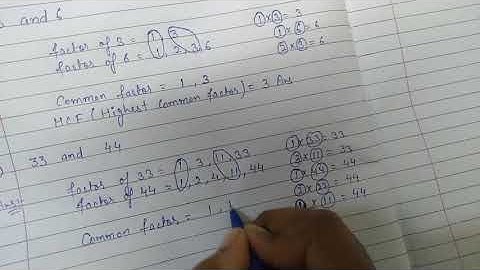 and 6
factor of 3 = 1, 3
factor of 6 = 1, 2, 3, 6
1 × 3 = 3
1 × 6 = 6
2 × 3 = 6
Common factor = 1, 3
HCF (Highest Common factor) = 3 Ans
33 and 44
factor of 33 = 1, 3, 11, 33
factor of 44 = 1, 2, 4, 11, 44
1 × 33 = 33
3 × 11 = 33
1 × 44 = 44
2 × 22 = 44
× 11 = 44
Common factor = 1, 1